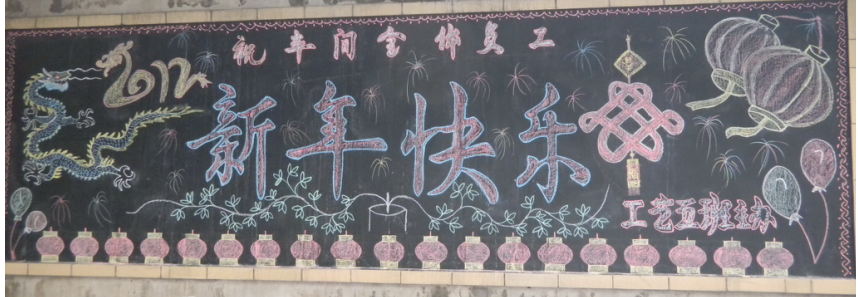 祝车间全体员工
2012
新年快乐
工艺五班主办